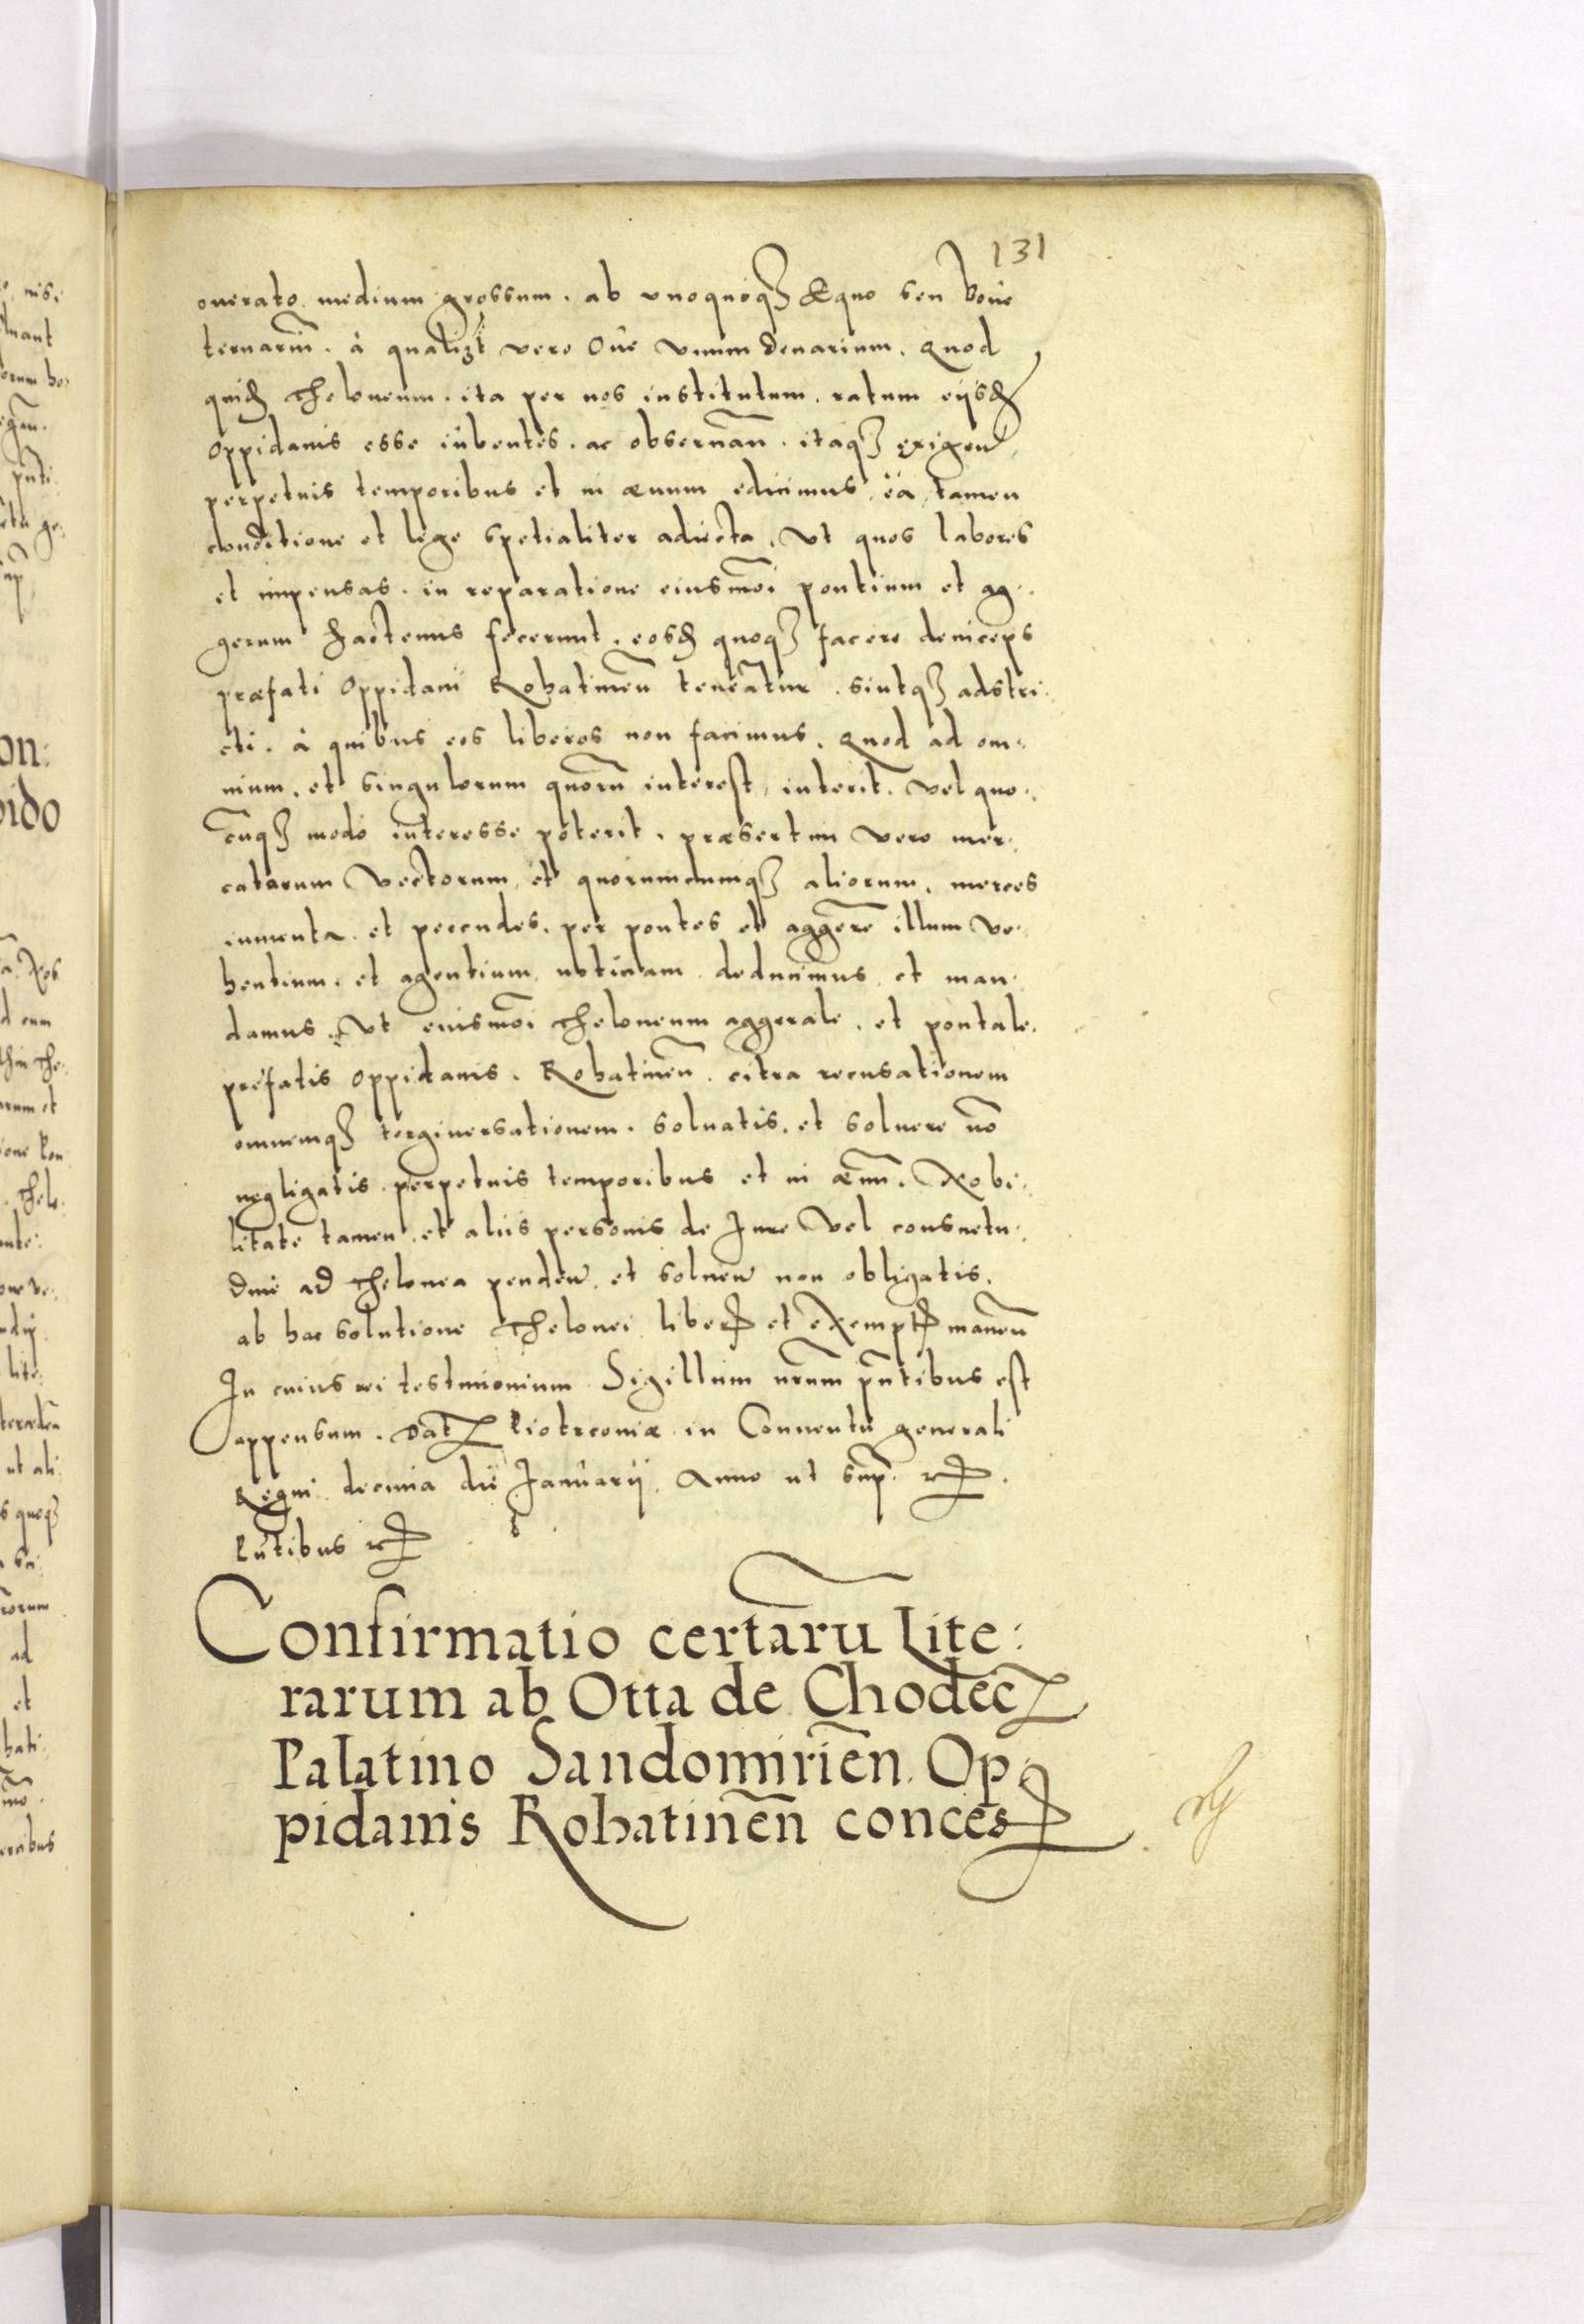 131
onerato medium grossum. ab vnoquoqꝫ Equo seu Boue
ternariũ. à qualibet vero Oue vnum denarium. Quod
quidẽ Theloneum. ita per nos institutum. ratum eijsdẽ
Oppidanis esse iubentes. ac obseruañ. itaqꝫ exigeñ
perpetuis temporibus et in æuum edicimus, ea tamen
conditione et lege spetialiter adiecta. Vt quos labores
et impensas. in reparatione eiusmõi pontium et ag-
gerum hactenus fecerunt. eosdẽ quoqꝫ facere deinceps
præfati Oppidani Rohatineñ teneãtur. sintqꝫ adstri-
cti. à quibus eos liberos non facimus. Quod ad om-
nium. et singulorum quorũ interest, interit. vel quo-
cũqꝫ modo interesse poterit. præsertim vero mer-
catorum Vectorum et quorumcumqꝫ aliorum. merces
iumenta et pecudes. per pontes et aggerẽ illum ve-
hentium. et agentium notitiam deducimus et man-
damus. Vt eiusmõi Theloneum aggerale. et pontale.
prefatis Oppidanis. Rohatineñ. citra recusationem
omnemqꝫ tergiuersationem. soluatis. et soluere nõ
negligatis. perpetuis temporibus et in æuũ. Nobi-
litate tamen et aliis personis de Jure Vel consuetu-
dine ad Thelonea pendeñ et solueñ non obligatis.
ab hac solutione Thelonei liberꝭ et exemptꝭ maneñ
In cuius rei testimonium Sigillum nr̃um pñtibus est
appensum. Datꝫ Piotrconiæ in Conuentu generali
Regni decima die Januarij. Anno ut sup̃.
Pñtibus
Confirmatio certarũ Lite-
rarum ab Otta de Chodecz
Palatino Sandomirieñ. Op-
pidanis Rohatineñ concesꝭ